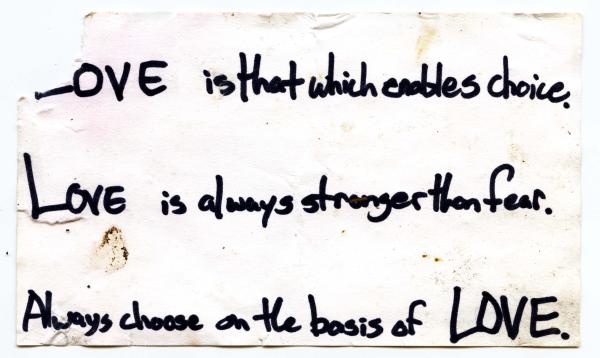 LOVE is that which enables choice.
LOVE is always stronger than fear.
Always choose on the basis of LOVE.